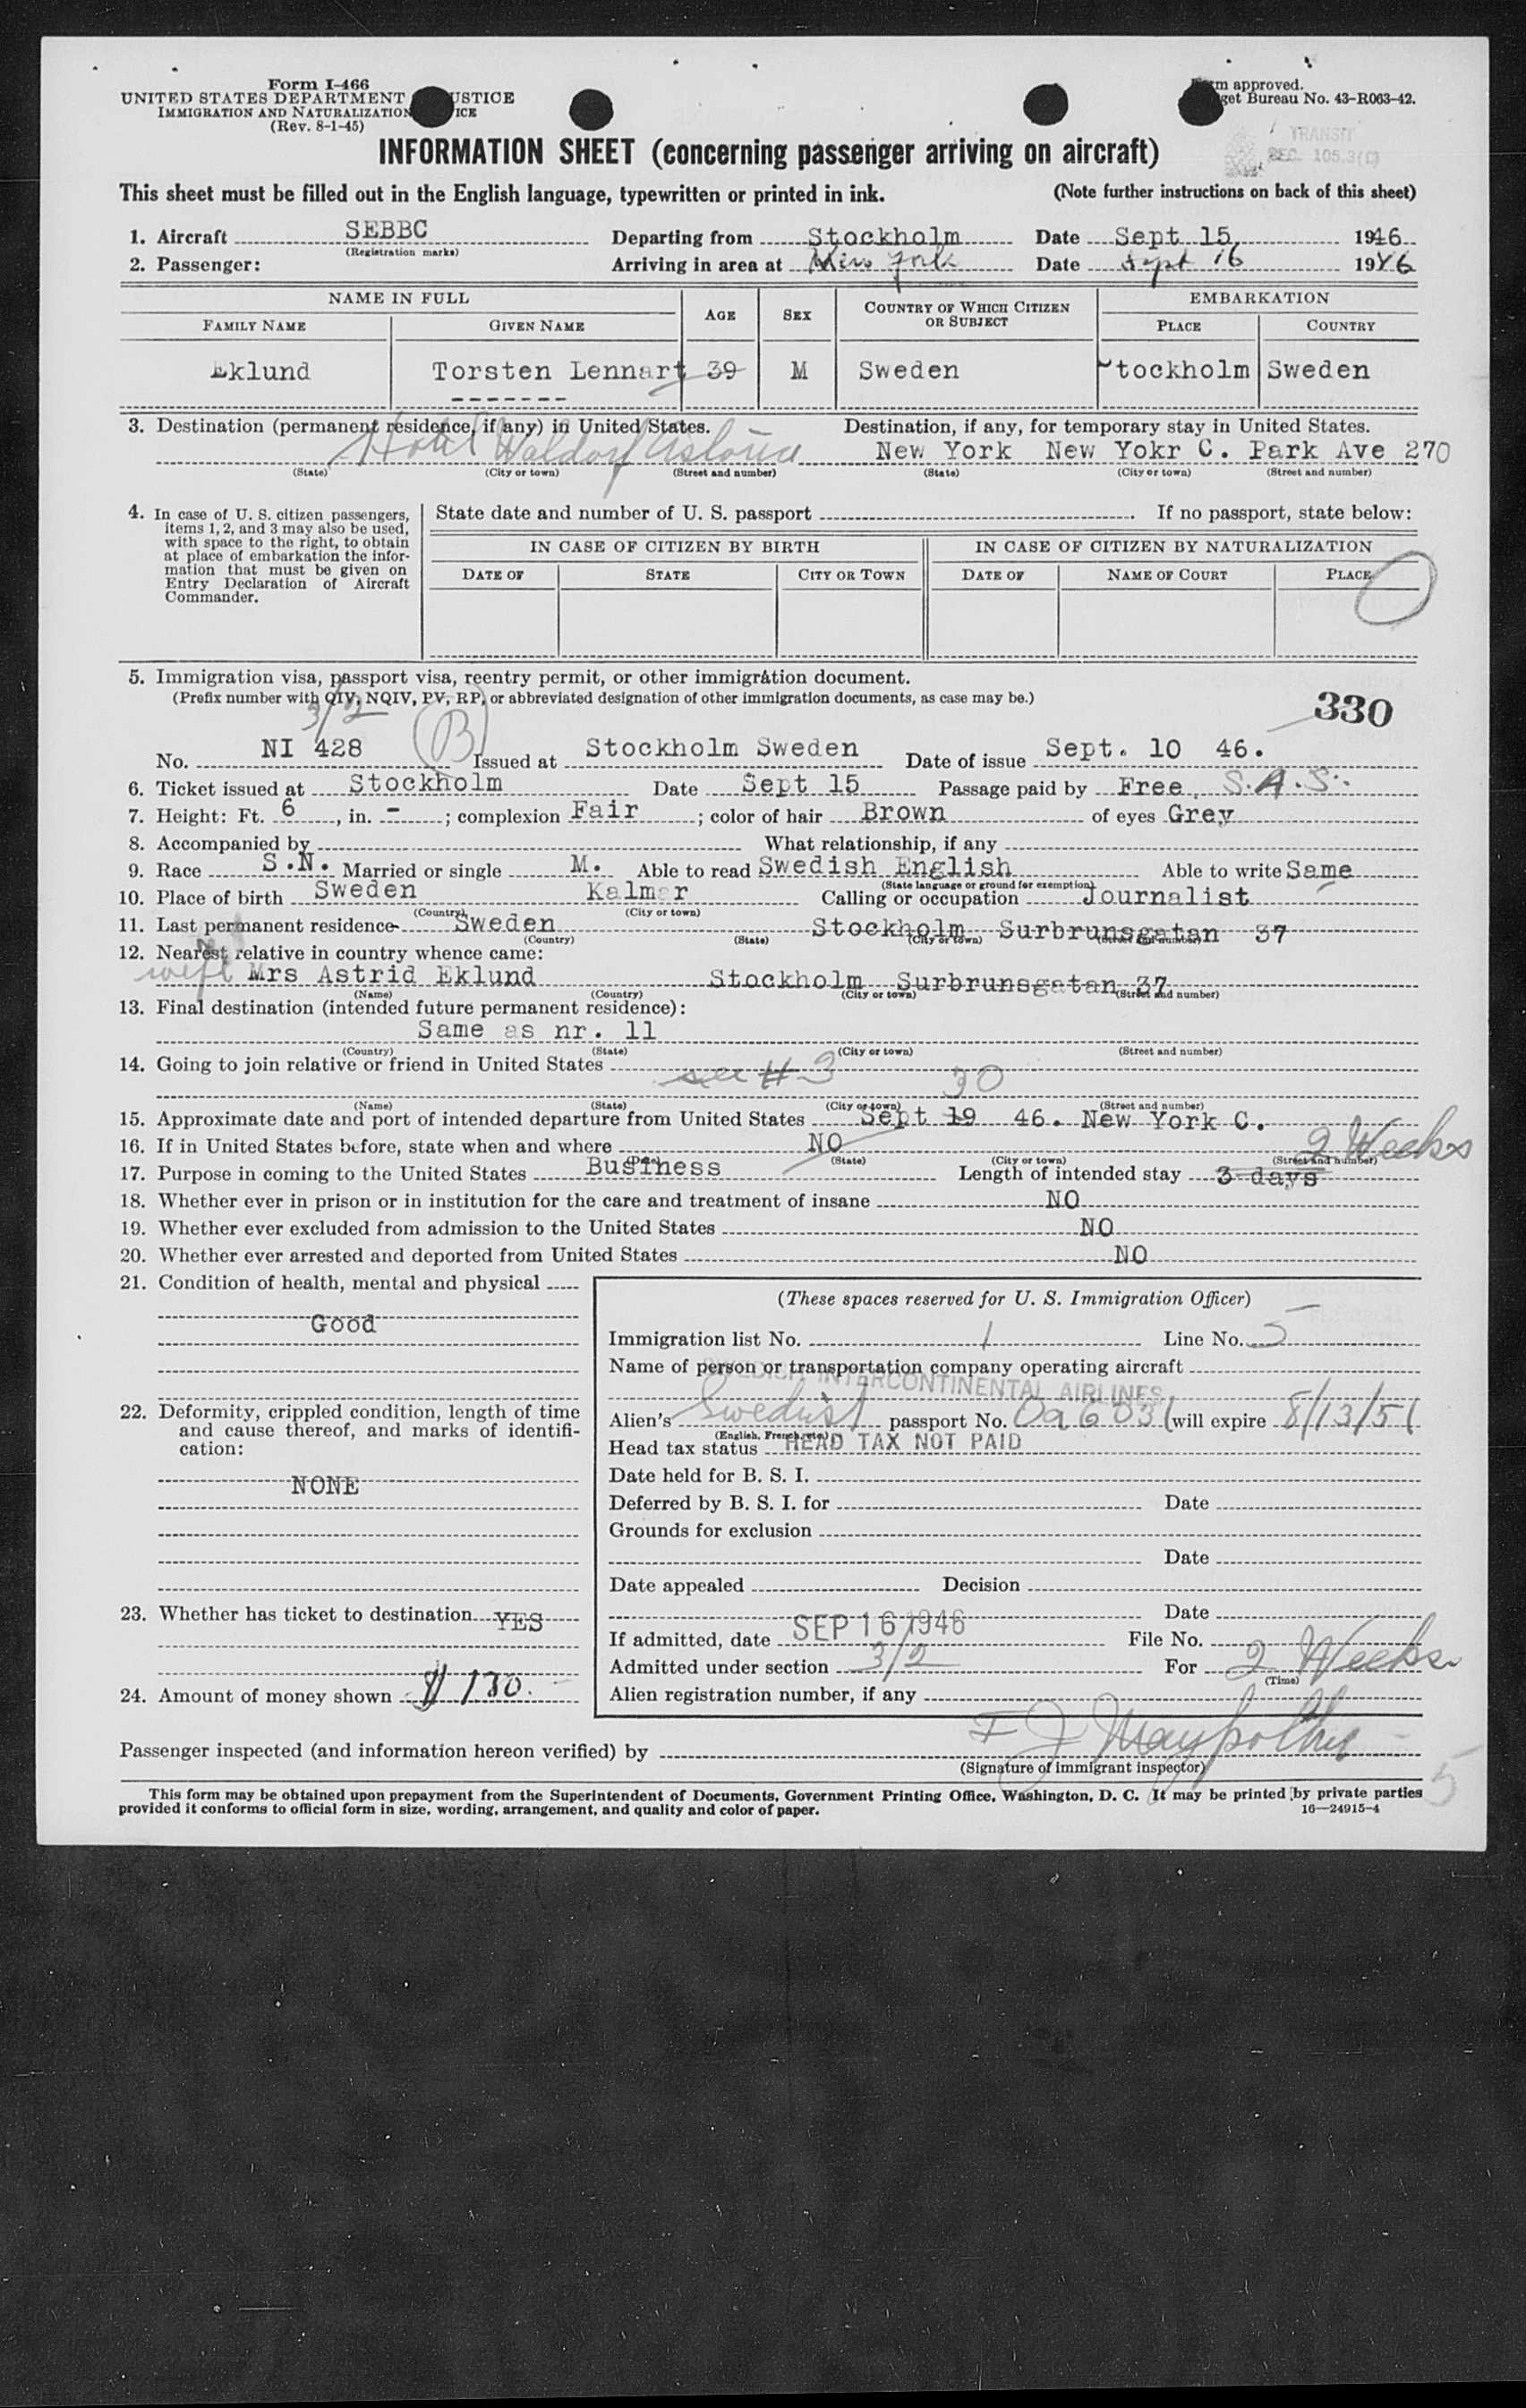 Form I-466
UNITED STATES DEPARTMENT USTICE
IMMIGRATION AND NATURALIZATION ICE
(Rev. 8-1-45)
m approved.
get Bureau No. 43-R063-42.
TRANSIT
SEC. 105.3(C)
INFORMATION SHEET (concerning passenger arriving on aircraft)
This sheet must be filled out in the English language, typewritten or printed in ink. (Note further instructions on back of this sheet)
1. Aircraft SEBBC Departing from Stockholm Date Sept 15, 1946
(Registration marks)
2. Passenger: Arriving in area at New York Date Sept 16 1946
NAME IN FULL AGE SEX COUNTRY OF WHICH CITIZEN OR SUBJECT EMBARKATION
FAMILY NAME GIVEN NAME PLACE COUNTRY
Eklund Torsten Lennart 39 M Sweden Stockholm Sweden
3. Destination (permanent residence, if any) in United States. Destination, if any, for temporary stay in United States.
Hotel Waldorf Astoria New York New Yokr C. Park Ave 270
(State) (City or town) (Street and number) (State) (City or town) (Street and number)
4. In case of U. S. citizen passengers, items 1, 2, and 3 may also be used, with space to the right, to obtain at place of embarkation the information that must be given on Entry Declaration of Aircraft Commander.
State date and number of U. S. passport If no passport, state below:
IN CASE OF CITIZEN BY BIRTH IN CASE OF CITIZEN BY NATURALIZATION
DATE OF STATE CITY OR TOWN DATE OF NAME OF COURT PLACE
5. Immigration visa, passport visa, reentry permit, or other immigration document.
(Prefix number with QIV, NQIV, PV, RP, or abbreviated designation of other immigration documents, as case may be.)
330
3/2 (B)
No. NI 428 Issued at Stockholm Sweden Date of issue Sept. 10 46.
6. Ticket issued at Stockholm Date Sept 15 Passage paid by Free S.A.S.
7. Height: Ft. 6, in. -; complexion Fair; color of hair Brown of eyes Grey
8. Accompanied by What relationship, if any
9. Race S.N. Married or single M. Able to read Swedish English Able to write Same
(State language or ground for exemption)
10. Place of birth Sweden Kalmar Calling or occupation Journalist
(Country) (City or town)
11. Last permanent residence Sweden Stockholm Surbrunsgatan 37
(Country) (State) (City or town) (Street and number)
12. Nearest relative in country whence came:
wife Mrs Astrid Eklund Stockholm Surbrunsgatan 37
(Name) (Country) (City or town) (Street and number)
13. Final destination (intended future permanent residence):
Same as nr. 11
(Country) (State) (City or town) (Street and number)
14. Going to join relative or friend in United States see #3
30
(Name) (State) (City or town) (Street and number)
15. Approximate date and port of intended departure from United States Sept 19 46. New York C.
16. If in United States before, state when and where NO
(Date) (State) (City or town) (Street and number)
2 Weeks
17. Purpose in coming to the United States Business Length of intended stay 3 days
18. Whether ever in prison or in institution for the care and treatment of insane NO
19. Whether ever excluded from admission to the United States NO
20. Whether ever arrested and deported from United States NO
21. Condition of health, mental and physical
Good
22. Deformity, crippled condition, length of time and cause thereof, and marks of identification:
NONE
23. Whether has ticket to destination YES
24. Amount of money shown $ 130.
(These spaces reserved for U. S. Immigration Officer)
Immigration list No. 1 Line No. 5
Name of person or transportation company operating aircraft
SWEDISH INTERCONTINENTAL AIRLINES
Alien's Swedish passport No. 0a6031 will expire 8/13/51
(English, French, etc.)
Head tax status HEAD TAX NOT PAID
Date held for B. S. I.
Deferred by B. S. I. for Date
Grounds for exclusion
Date
Date appealed Decision
Date
If admitted, date SEP 16 1946 File No.
Admitted under section 3/2 For 2 Weeks
(Time)
Alien registration number, if any
Passenger inspected (and information hereon verified) by
(Signature of immigrant inspector)
5
This form may be obtained upon prepayment from the Superintendent of Documents, Government Printing Office, Washington, D. C. It may be printed by private parties
provided it conforms to official form in size, wording, arrangement, and quality and color of paper. 16—24915-4